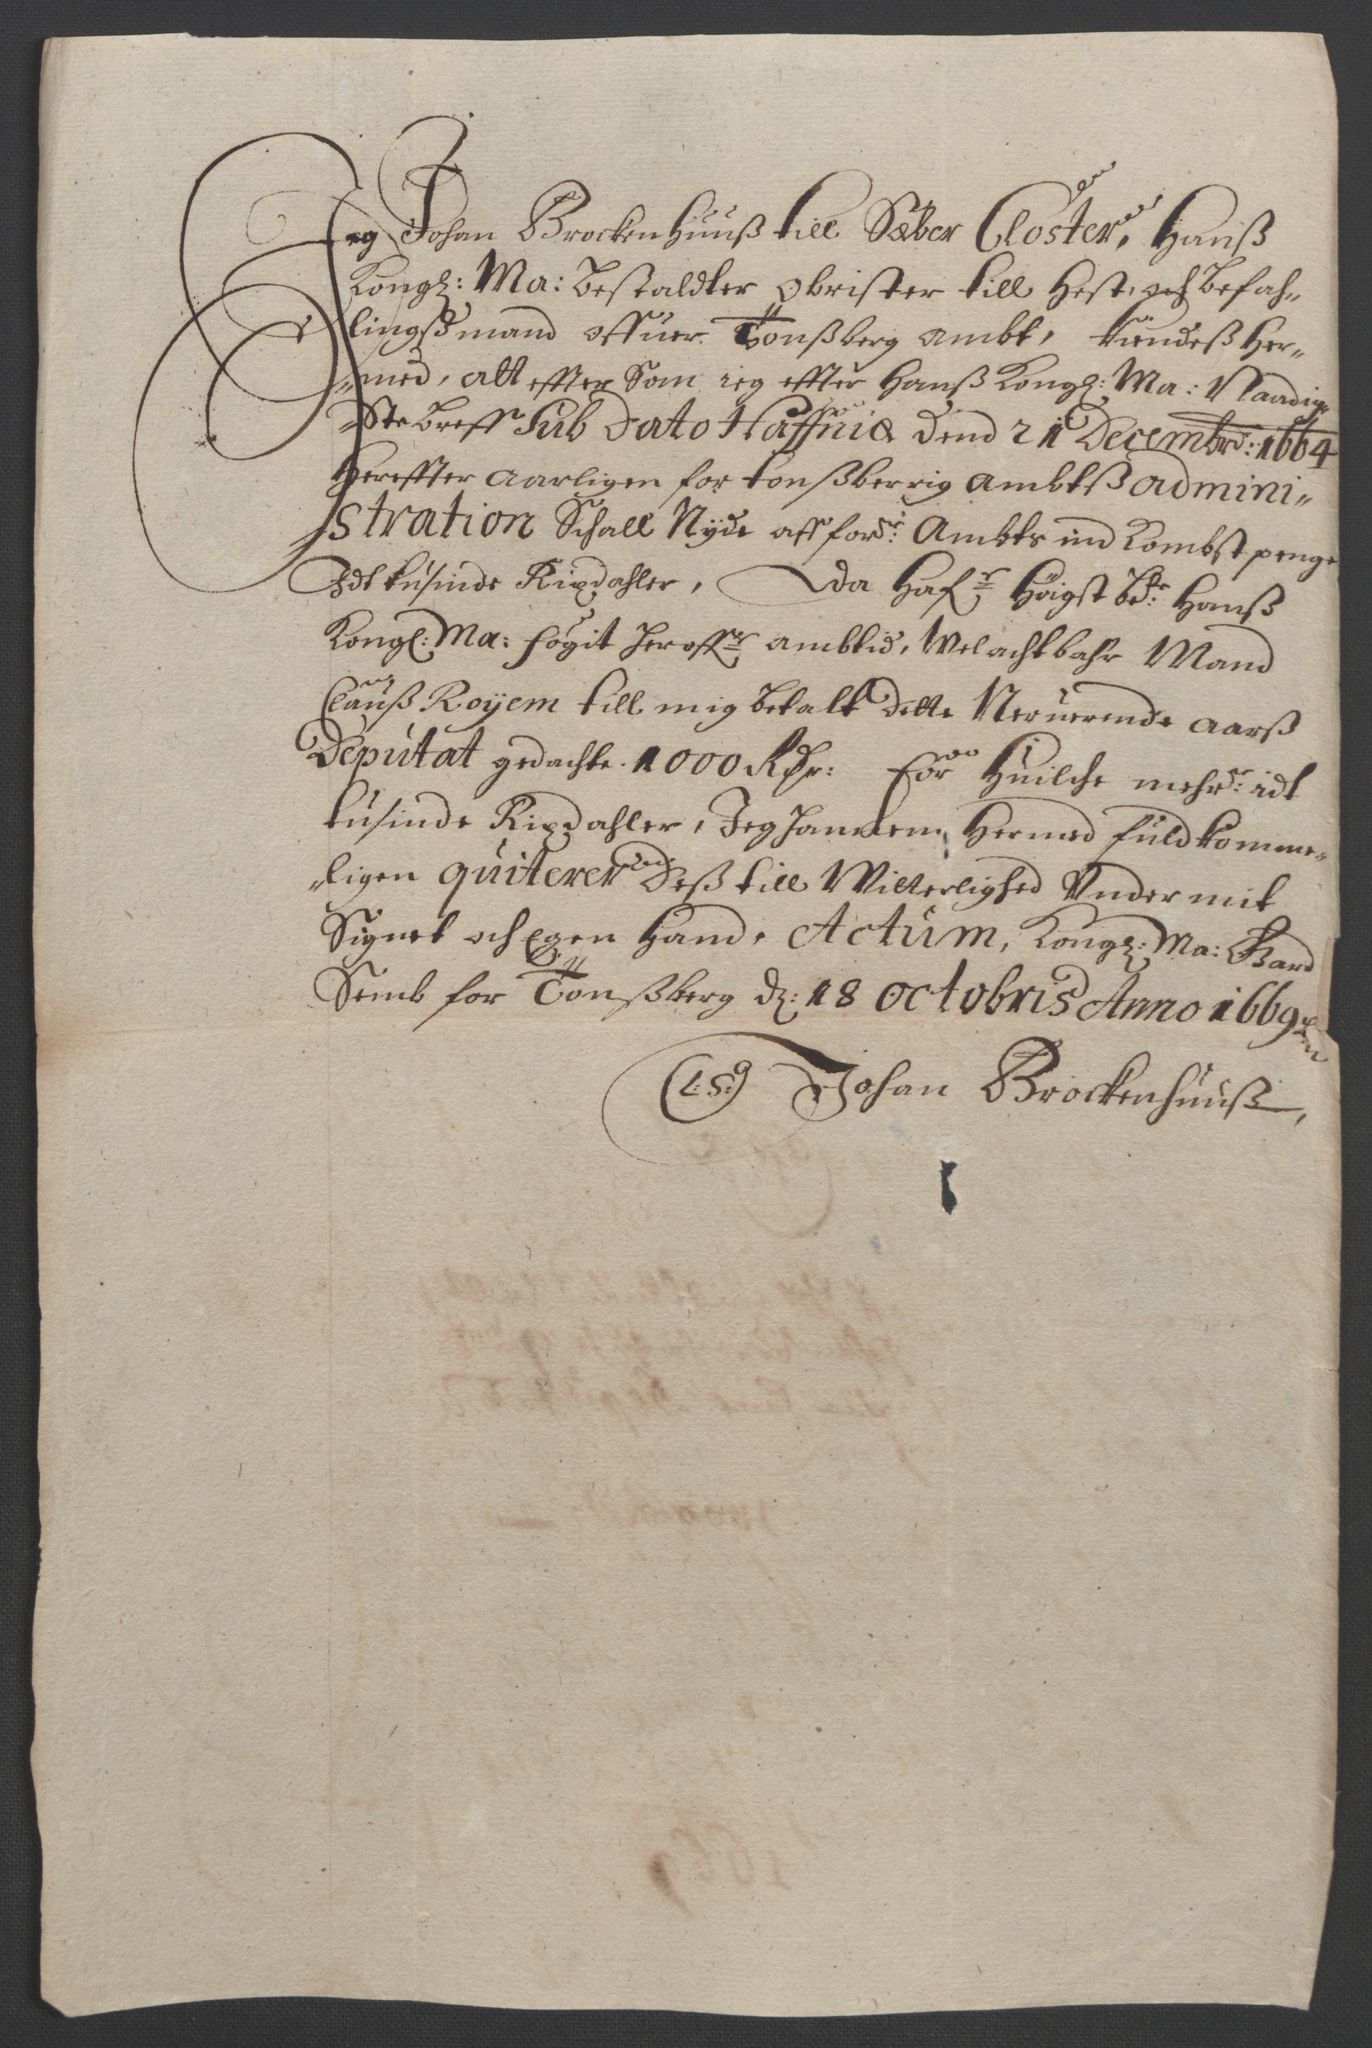 Jeg Johan Brockenhuuß till Sæber Closter, Hanß
Kongl: Ma: bestaldter Obrister till Hest, och befah-
lingsmand offuer Tonßberg Ambt, kiendeß her-
med, att effter Som ieg effter Hanß Kongl: Ma: Naadig-
ste breff Sub Dato Haffniæ dend 21 Decembr: 1664
Hereffter aarligen for Tonßberrig Ambtß admini-
stration Schall Nyde aff forbr: Ambts indkombst penge
Idt tusinde Rixdahler, da Hafr Höigst bdr: Hanß
Kongl: Ma: fogit her offr ambtid, Velachtbahr Mand
Clauß Royem till mig betalt dette Neruerende aarß
Deputat gedachte 1000 Rdr: For Huilche mehrbr: idt
tusinde Rixdahler, Jeg hannem Hermed fuldkomme-
ligen quiterer Deß till Witterlighed Vnder mit
Signet och Egen Hand, Actum, Kongl: Ma: Gaard
Semb for Tonßberg dz: 18 Octobris Anno 1669
(L:S:) Johan Brockenhuuß,
1669